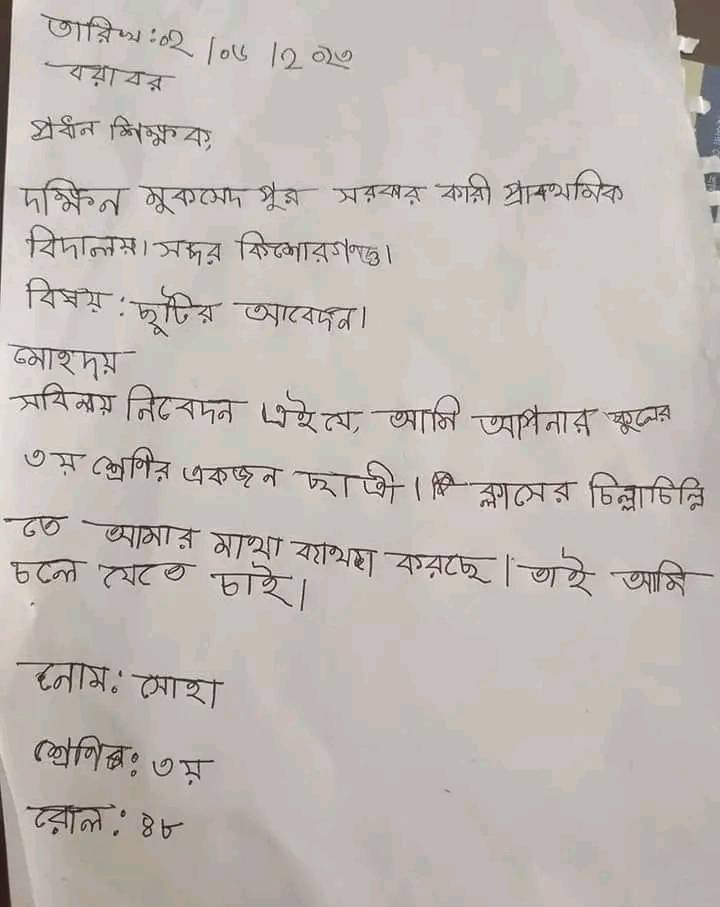 তারিখ : ০২ / ০৬ / ২০২৩
বরাবর
প্রধান শিক্ষক,
দক্ষিন মুকসেদ পুর সরকার কারী প্রাথমিক
বিদালয়। সদর কিশোরগঞ্জ।
বিষয় : ছুটির আবেদন।
মোহদয়
সবিনয় নিবেদন এই যে, আমি আপনার স্কুলের
৩য় শ্রেণির একজন ছাত্রী। ক্লাসের চিল্লাচিল্লি
তে আমার মাথা ব্যাথা করছে। তাই আমি
চলে যেতে চাই।
নাম : সোহা
শ্রেণি : ৩য়
রোল : ৪৮